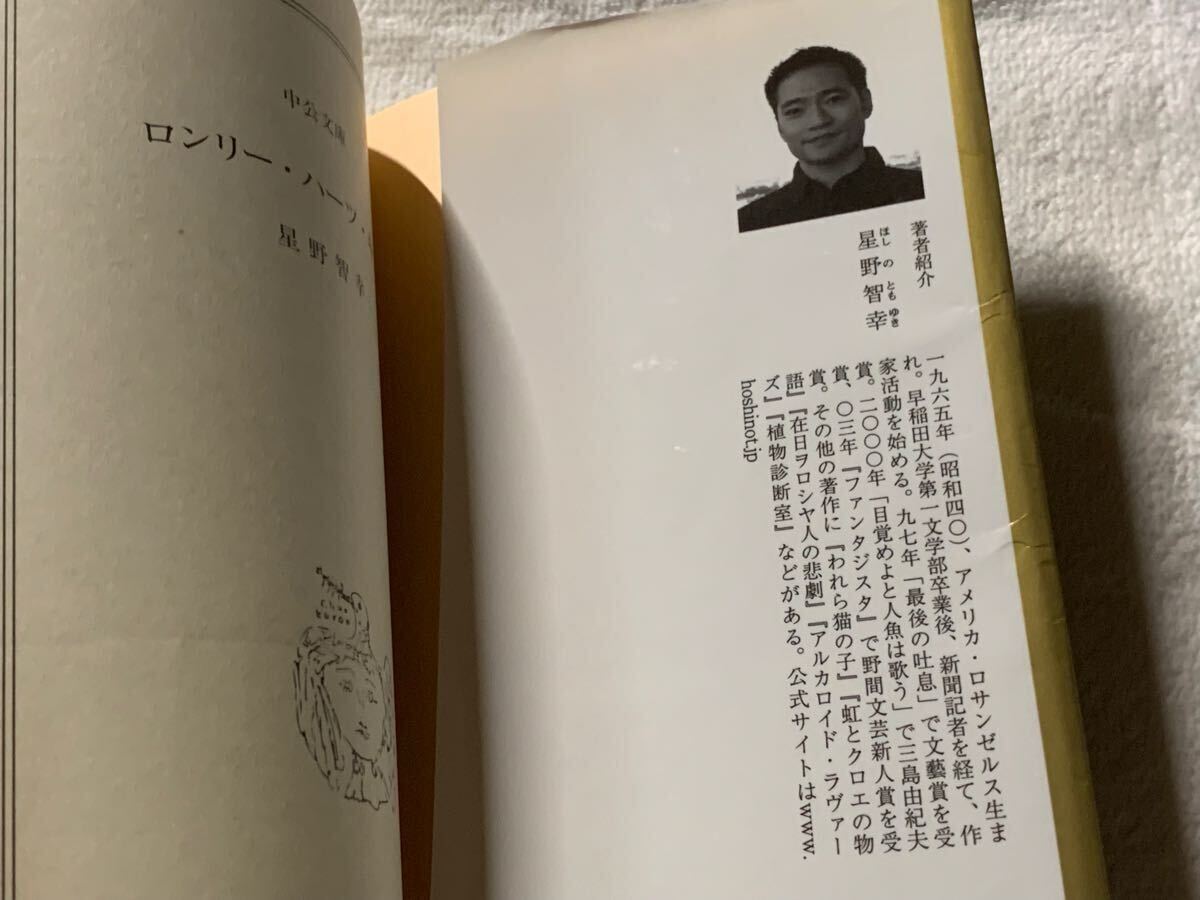 中公文庫
ロンリー・ハーツ・
星野智幸
著者紹介
星野智幸
ほしのともゆき
一九六五年（昭和四〇）、アメリカ・ロサンゼルス生ま
れ。早稲田大学第一文学部卒業後、新聞記者を経て、作
家活動を始める。九七年「最後の吐息」で文藝賞を受
賞。二〇〇〇年「目覚めよと人魚は歌う」で三島由紀夫
賞、〇三年『ファンタジスタ』で野間文芸新人賞を受
賞。その他の著作に『われら猫の子』『虹とクロエの物
語』『在日ヲロシヤ人の悲劇』『アルカロイド・ラヴァー
ズ』『植物診断室』などがある。公式サイトはwww.
hoshinot.jp